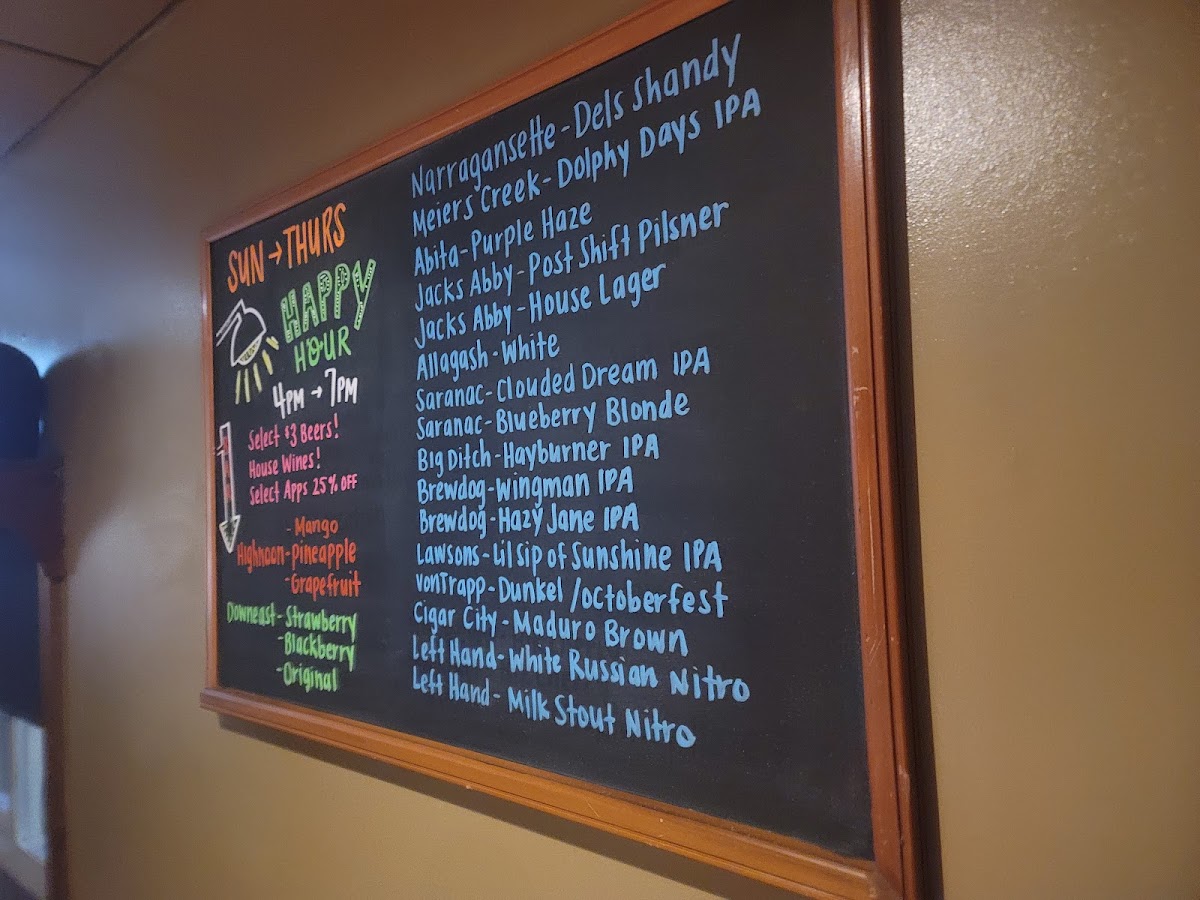 SUN → THURS
HAPPY
HOUR
4PM → 7PM
Select $3 Beers!
House Wines!
Select Apps 25% OFF
- Mango
Highnoon - Pineapple
- Grapefruit
Downeast - Strawberry
- Blackberry
- Original
Narragansette - Dels Shandy
Meiers Creek - Dolphy Days IPA
Abita - Purple Haze
Jacks Abby - Post Shift Pilsner
Jacks Abby - House Lager
Allagash - White
Saranac - Clouded Dream IPA
Saranac - Blueberry Blonde
Big Ditch - Hayburner IPA
Brewdog - Wingman IPA
Brewdog - Hazy Jane IPA
Lawsons - Lil sip of Sunshine IPA
VonTrapp - Dunkel /octoberfest
Cigar City - Maduro Brown
Left Hand - White Russian Nitro
Left Hand - Milk Stout Nitro